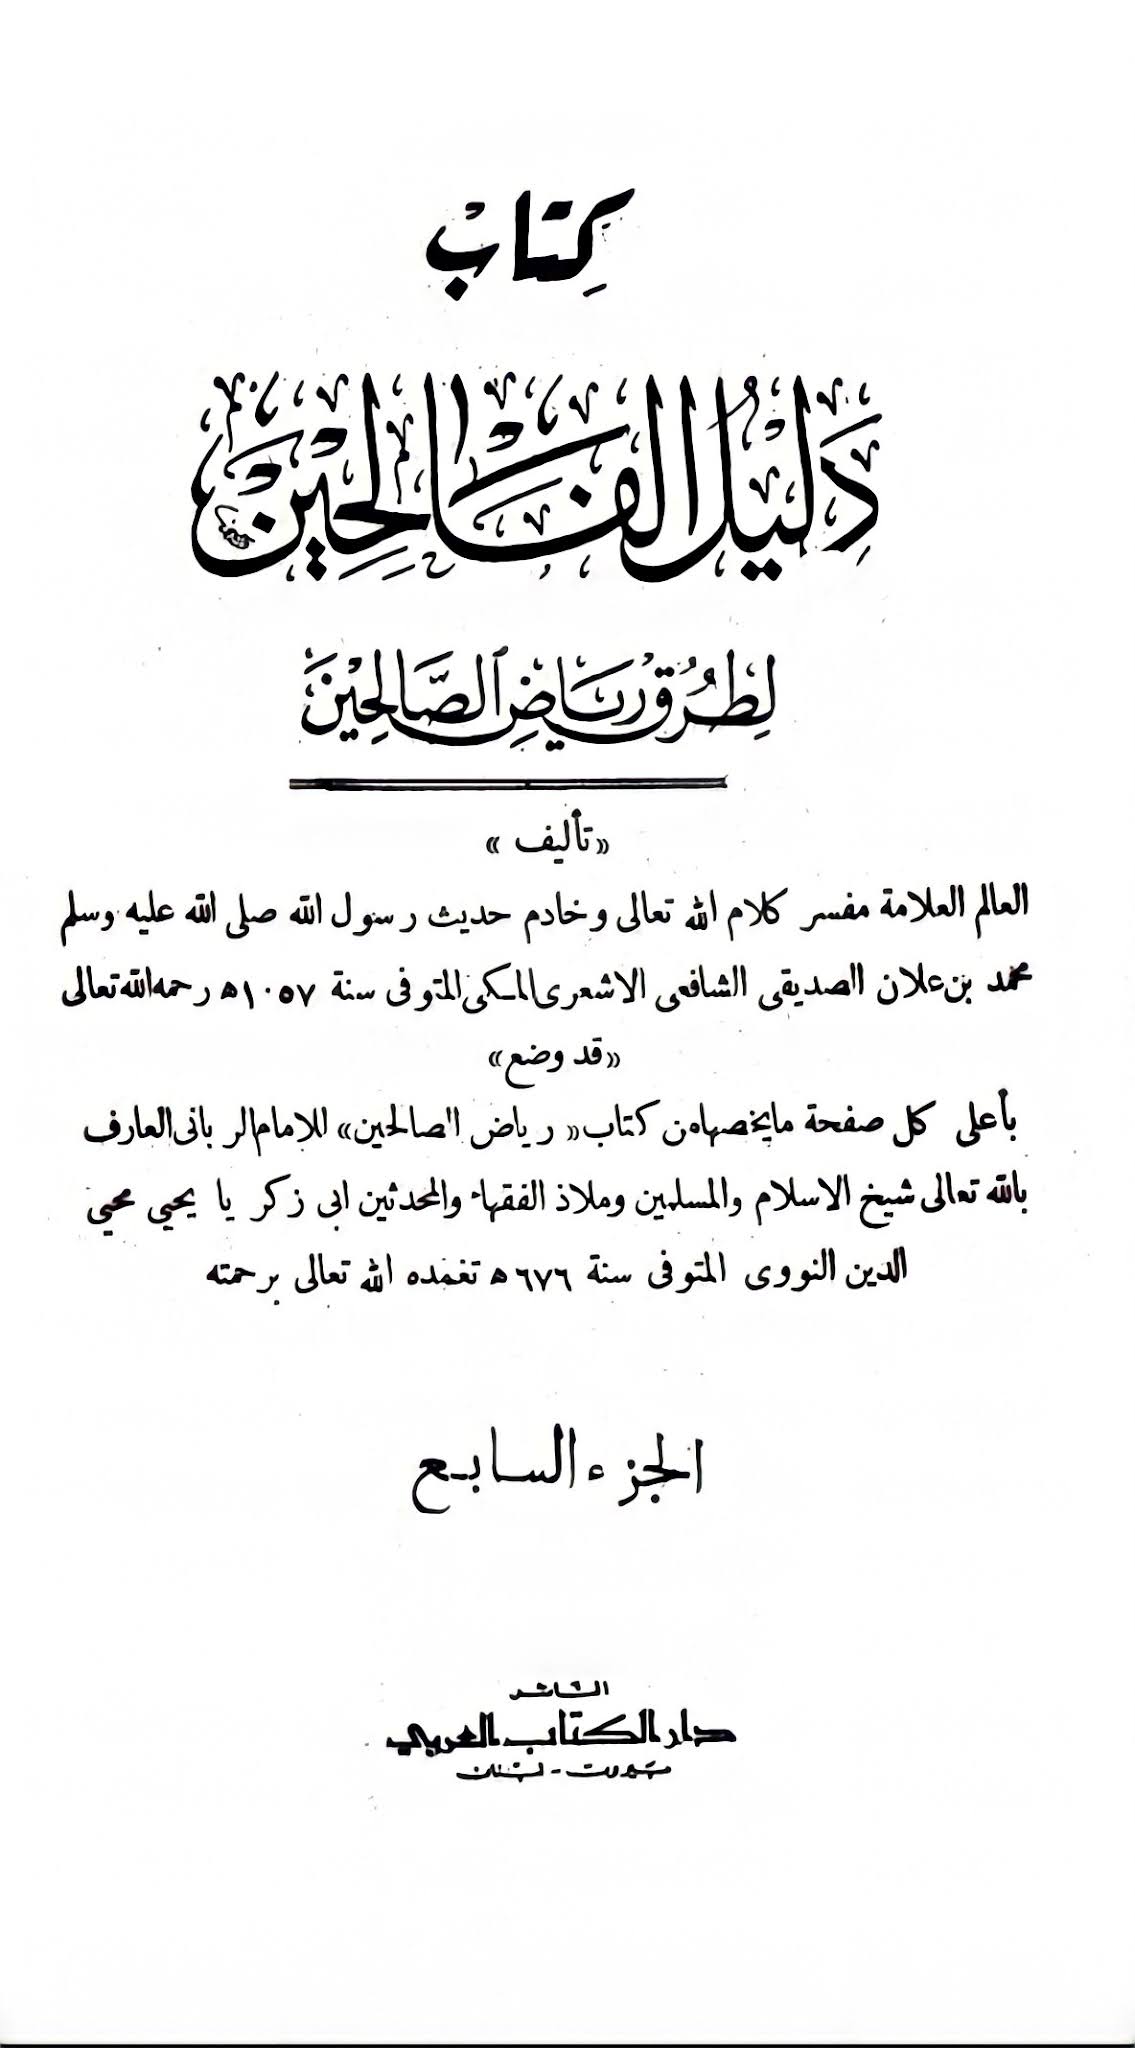 كِتاب
دَلِيلُ الفَالِحِين
لِطُرُقِ رِيَاضِ الصَّالِحِينَ
«تأليف»
العالم العلامة مفسر كلام الله تعالى وخادم حديث رسول الله صلى الله عليه وسلم
محمد بن علان الصديقى الشافعى الاشعرى المكى المتوفى سنة ١٠٥٧ﻫ رحمه الله تعالى
«قد وضع»
بأعلى كل صفحة مايخصها من كتاب «رياض الصالحين» للامام الربانى العارف
بالله تعالى شيخ الاسلام والمسلمين وملاذ الفقهاء والمحدثين ابى زكريا يحيي محيي
الدين النووى المتوفى سنة ٦٧٦ﻫ تغمده الله تعالى برحمته
الجزء السابع
الناشر
دار الكتاب العربي
بيروت - لبنان